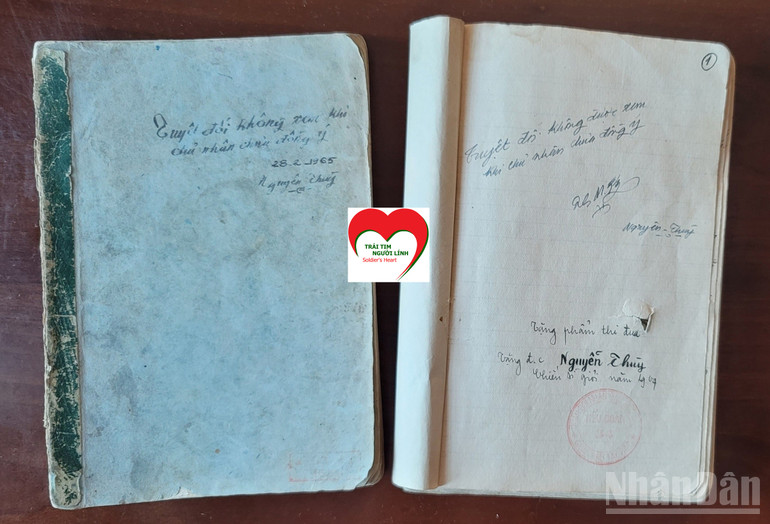 Tuyệt đối không xem khi
chủ nhân chưa đồng ý
28-2-1965
Nguyễn Thuỷ
TRÁI TIM
NGƯỜI LÍNH
Soldier's Heart
1
Tuyệt đối không được xem
khi chủ nhân chưa đồng ý
Nguyễn Thuỷ
Tặng phẩm thi đua
Tặng đ.c Nguyễn Thuỷ
Chiến sĩ giỏi năm
NhânDân